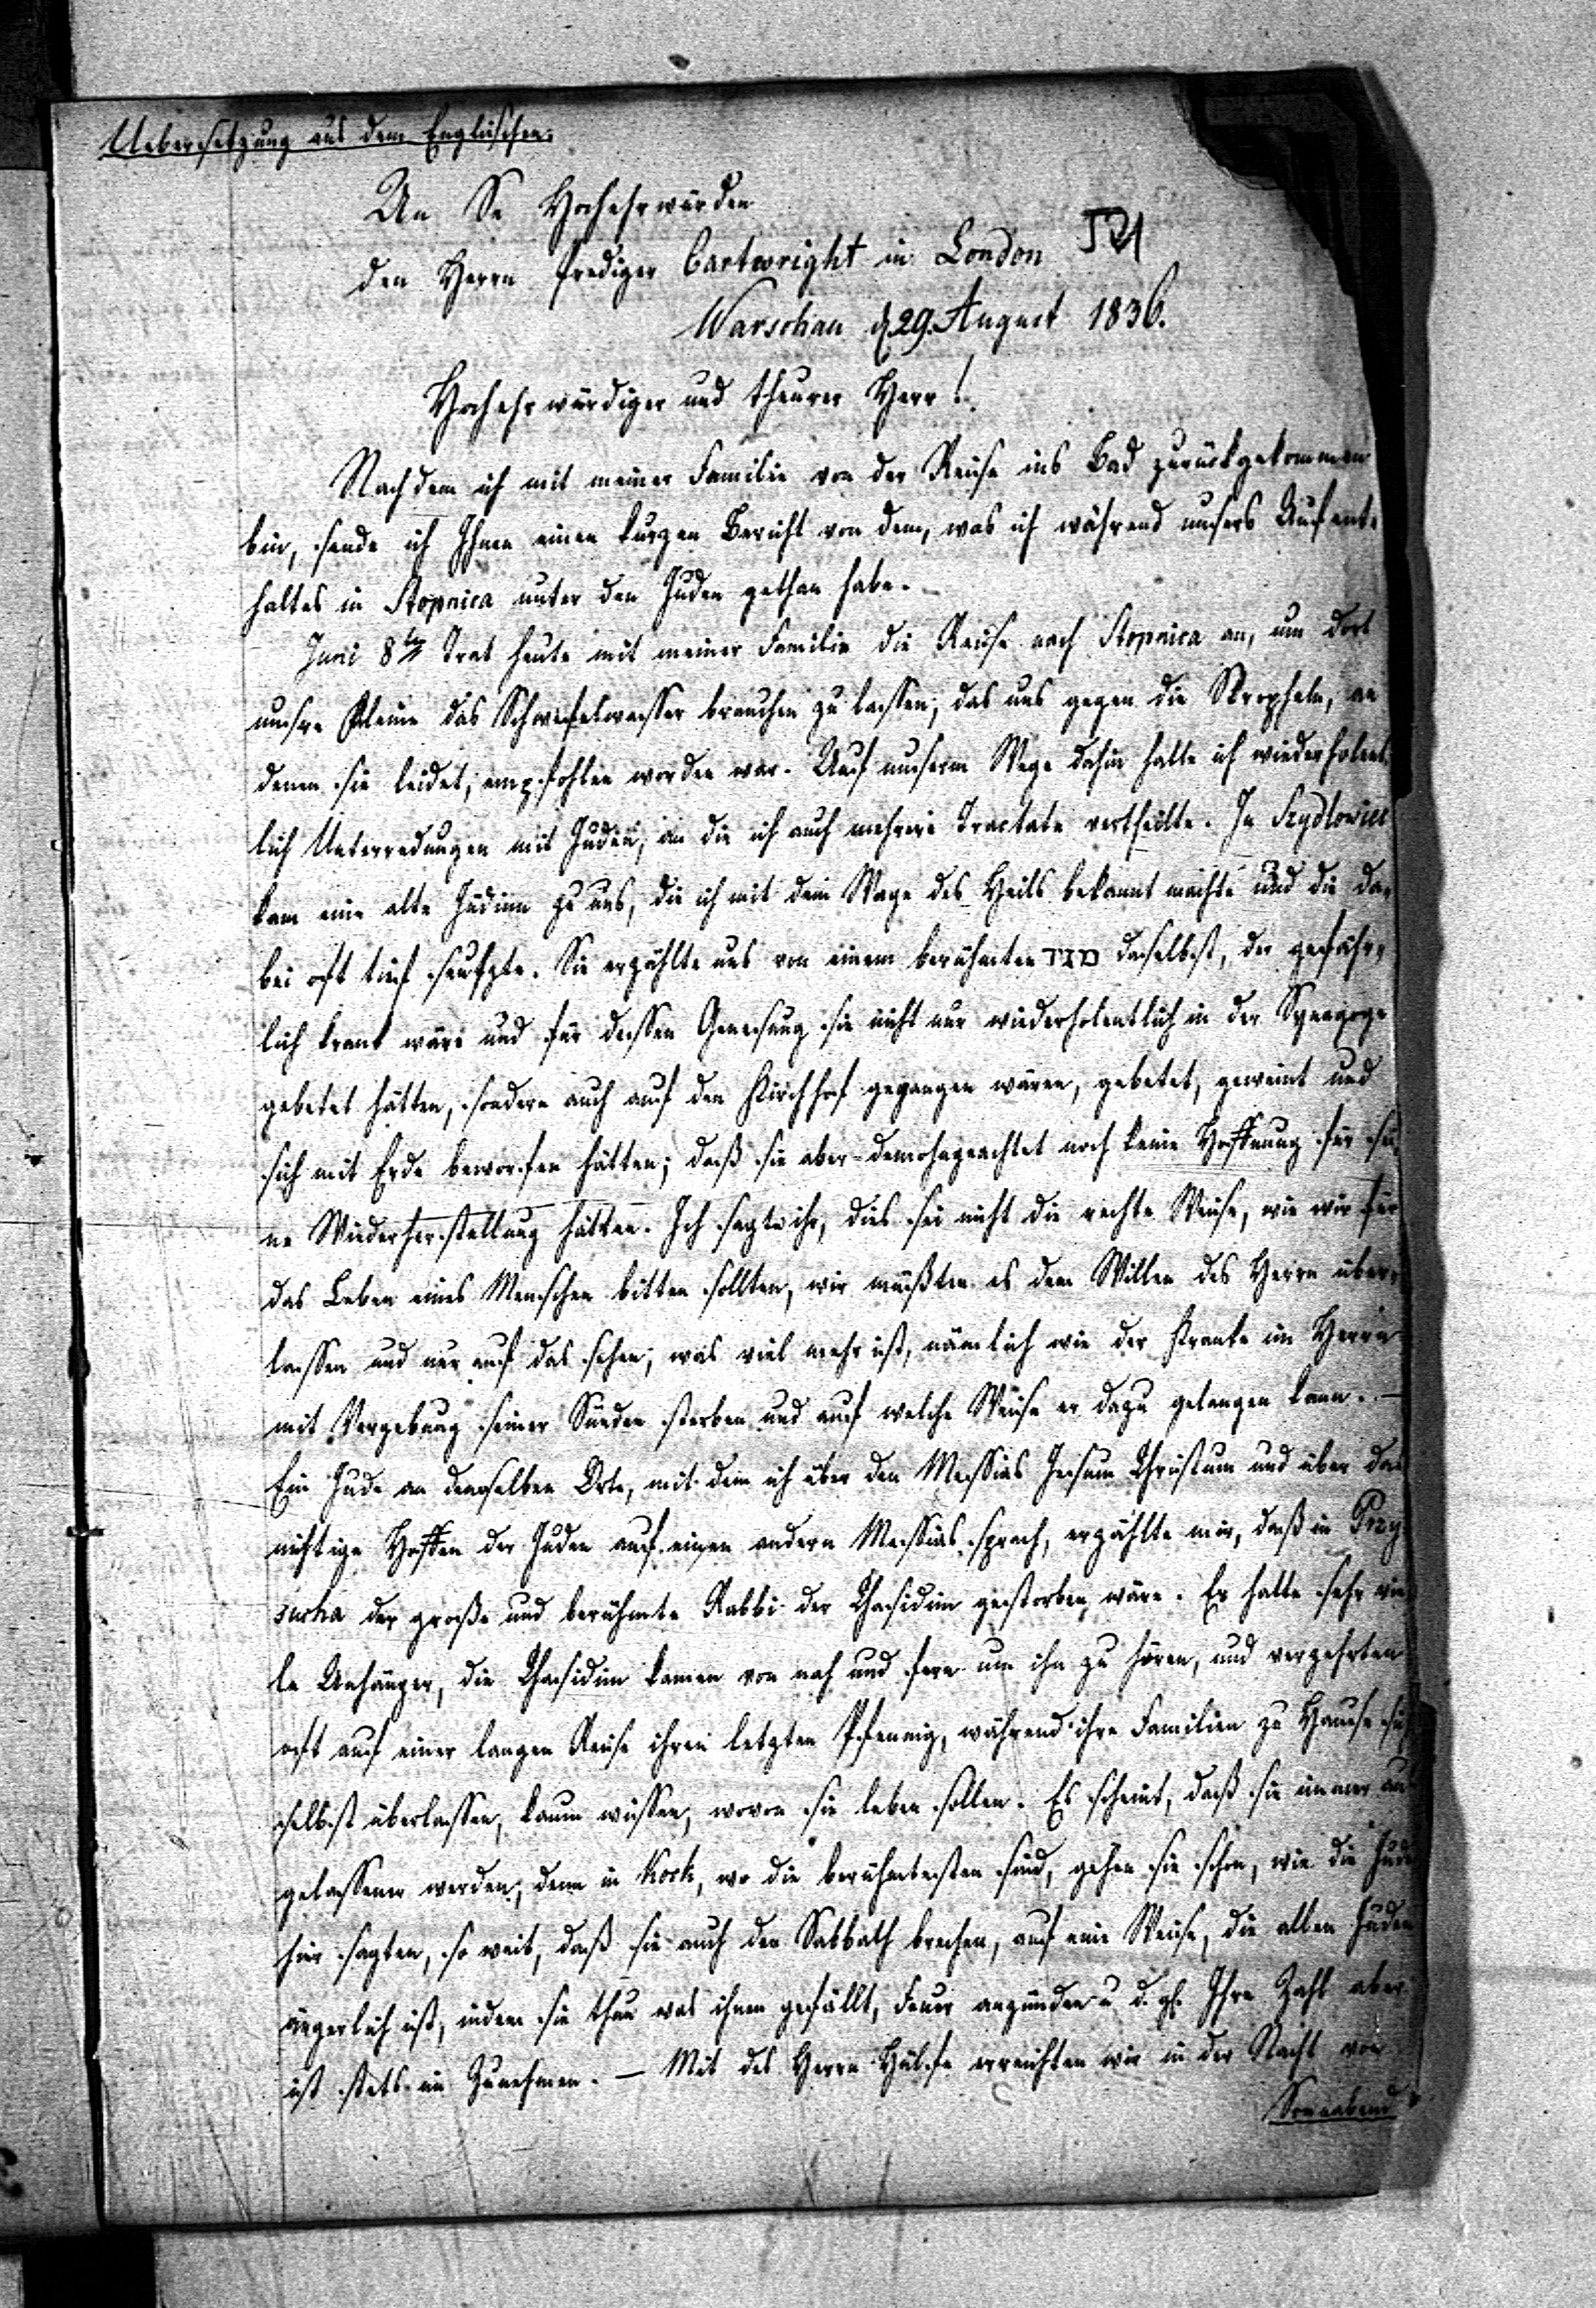 Uebersetzung aus dem Englischen.
An Se Hochehrwürden
den Herrn Prediger Cartwright in London
521
Warschau d. 29. August 1836.
Hochehrwürdiger und theurer Herr!
Nachdem ich mit meiner Familie von der Reise ins Bad zurückgekommen
bin, sende ich Ihnen einen kurzen Bericht von dem, was ich während unsers Aufent-
haltes in Stopnica unter den Juden gethan habe.
Juni 8te Trat heute mit meiner Familie die Reise nach Stopnica an, um dort
unsre Kleine das Schwefelwasser brauchen zu lassen, das uns gegen die Skropheln, an
denen sie leidet, empfohlen worden war. Auf unserm Wege dahin hatte ich wiederholent-
lich Unterredungen mit Juden, an die ich auch mehrere Tractate vertheilte. In Szydlowiec
kam eine alte Jüdinn zu uns, die ich mit dem Wege des Heils bekannt machte und die da-
bei oft tief seufzte. Sie erzählte uns von einem berühmten daselbst, der gefähr-
lich krank wäre und für dessen Genesung sie nicht nur wiederholentlich in der Synagoge
gebetet hätten, sondern auch auf den Kirchhof gegangen wären, gebetet, geweint und
sich mit Erde beworfen hätten; daß sie aber demohngeachtet noch keine Hoffnung für sei-
ne Wiederherstellung hätten. Ich sagte ihr, dies sei nicht die rechte Weise, wie wir für
das Leben eines Menschen bitten sollten, wir müßten es dem Willen des Herrn über-
lassen und nur auf das sehen, was viel mehr ist, nämlich wie der Kranke im Herrn
mit Vergebung seiner Sünden sterben und auf welche Weise er dazu gelangen kann. —
Ein Jude an demselben Orte, mit dem ich über den Messias Jesum Christum und über das
nichtige Hoffen der Juden auf einen andern Messias sprach, erzählte mir, daß in Przy-
sucha der große und berühmte Rabbi der Chasidim gestorben wäre. Er hatte sehr vie-
le Anhänger, die Chasidim kamen von nah und fern um ihn zu hören, und verzehrten
oft auf einer langen Reise ihren letzten Pfennig, während ihre Familien zu Hause sich
selbst überlassen, kaum wissen, wovon sie leben sollen. Es scheint, daß sie immer aus-
gelassener werden, denn in Kock, wo die berühmtesten sind, gehen sie schon, wie die Juden
hier sagten, so weit, daß sie auch den Sabbath brechen, auf eine Weise, die allen Juden
ärgerlich ist, indem sie thun was ihnen gefällt, Feuer anzünden u. d. gl. Ihre Zahl aber
ist stets im Zunehmen. — Mit des Herrn Hülfe erreichten wir in der Nacht vom
Sonnabend